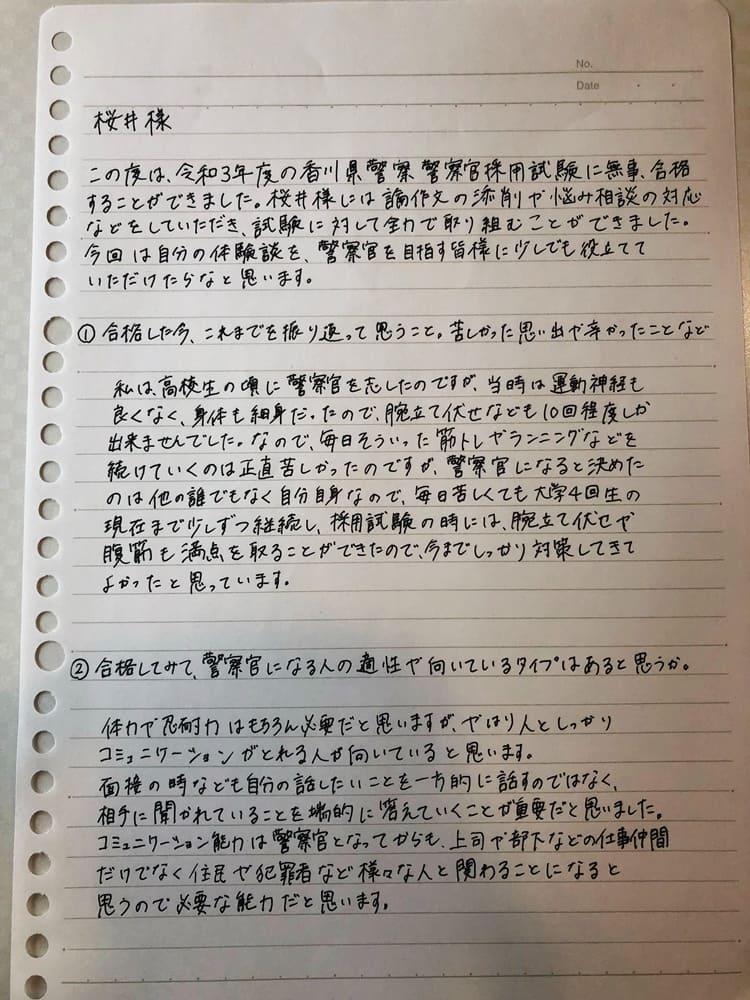 No.
Date
桜井様
この度は、令和3年度の香川県警察 警察官採用試験に無事、合格
することができました。桜井様には論作文の添削や悩み相談の対応
などをしていただき、試験に対して全力で取り組むことができました。
今回は自分の体験談を、警察官を目指す皆様に少しでも役立てて
いただけたらなと思います。
① 合格した今、これまでを振り返って思うこと。苦しかった思い出や辛かったことなど
私は、高校生の頃に警察官を志したのですが、当時は運動神経も
良くなく、身体も細身だったので、腕立て伏せなども10回程度しか
出来ませんでした。なので、毎日そういった筋トレやランニングなどを
続けていくのは正直苦しかったのですが、警察官になると決めた
のは他の誰でもなく自分自身なので、毎日苦しくても大学4回生の
現在まで少しずつ継続し、採用試験の時には、腕立て伏せや
腹筋も満点を取ることができたので、今までしっかり対策してきて
よかったと思っています。
② 合格してみて、警察官になる人の適性や向いているタイプはあると思うか。
体力や忍耐力はもちろん必要だと思いますが、やはり人としっかり
コミュニケーションがとれる人が向いていると思います。
面接の時なども自分の話したいことを一方的に話すのではなく、
相手に聞かれていることを端的に答えていくことが重要だと思いました。
コミュニケーション能力は警察官となってからも、上司や部下などの仕事仲間
だけでなく住民や犯罪者など様々な人と関わることになると
思うので必要な能力だと思います。